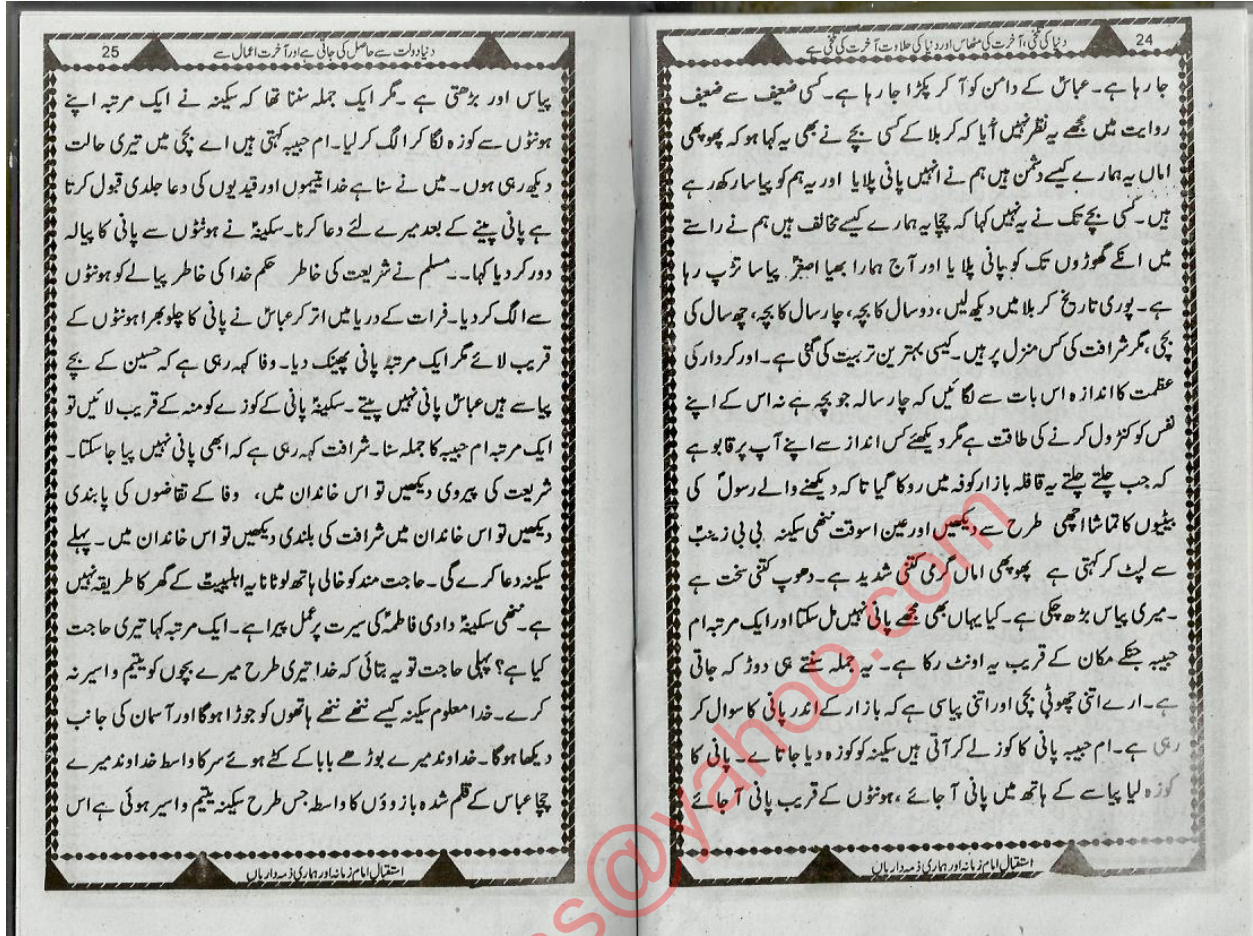 24
دنیا کی تلخی، آخرت کی مٹھاس اور دنیا کی حلاوت آخرت کی تلخی ہے
جا رہا ہے۔ عباسؑ کے دامن کو آ کر پکڑا جا رہا ہے۔ کسی ضعیف سے ضعیف
روایت میں مجھے یہ نظر نہیں آیا کہ کربلا کے کسی بچے نے بھی یہ کہا ہو کہ پھوپھی
اماں یہ ہمارے کیسے دشمن ہیں ہم نے انہیں پانی پلایا اور یہ ہم کو پیاسا رکھ رہے
ہیں۔ کسی بچے تک نے یہ نہیں کہا کہ چچا یہ ہمارے کیسے مخالف ہیں ہم نے راستے
میں انکے گھوڑوں تک کو پانی پلایا اور آج ہمارا بھیا اصغرؑ پیاسا تڑپ رہا
ہے۔ پوری تاریخ کربلا میں دیکھ لیں، دو سال کا بچہ، چار سال کا بچہ، چھ سال کی
بچی، مگر شرافت کی کس منزل پر ہیں۔ کیسی بہترین تربیت کی گئی ہے۔ اور کردار کی
عظمت کا اندازہ اس بات سے لگائیں کہ چار سالہ جو بچہ ہے نہ اس کے اپنے
نفس کو کنٹرول کرنے کی طاقت ہے مگر دیکھئے کس انداز سے اپنے آپ پر قابو ہے
کہ جب چلتے چلتے یہ قافلہ بازار کوفہ میں روکا گیا تا کہ دیکھنے والے رسولؐ کی
بیٹیوں کا تماشا اچھی طرح سے دیکھیں اور عین اسوقت ننھی سکینہ بی بی زینبؑ
سے لپٹ کر کہتی ہے پھوپھی اماں گرمی کتنی شدید ہے۔ دھوپ کتنی سخت ہے
۔میری پیاس بڑھ چکی ہے۔ کیا یہاں بھی مجھے پانی نہیں مل سکتا اور ایک مرتبہ ام
حبیبہ جنکے مکان کے قریب یہ اونٹ رکا ہے۔ یہ جملہ سنتے ہی دوڑ کہ جاتی
ہے۔ ارے اتنی چھوٹی بچی اور اتنی پیاسی ہے کہ بازار کے اندر پانی کا سوال کر
رہی ہے۔ ام حبیبہ پانی کا کوز لے کر آتی ہیں سکینہ کو کوزہ دیا جاتا ے۔ پانی کا
کوزہ لیا پیاسے کے ہاتھ میں پانی آ جائے، ہونٹوں کے قریب پانی آ جائے
استقبال امام زمانہ اور ہماری ذمہ داریاں
25
دنیا دولت سے حاصل کی جاتی ہے اور آخرت اعمال سے
پیاس اور بڑھتی ہے ۔مگر ایک جملہ سننا تھا کہ سکینہ نے ایک مرتبہ اپنے
ہونٹوں سے کوزہ لگا کر الگ کر لیا۔ ام حبیبہ کہتی ہیں اے بچی میں تیری حالت
دیکھ رہی ہوں۔ میں نے سنا ہے خدا یتیموں اور قیدیوں کی دعا جلدی قبول کرتا
ہے پانی پینے کے بعد میرے لئے دعا کرنا۔ سکینہؑ نے ہونٹوں سے پانی کا پیالہ
دور کر دیا کہا۔۔ مسلم نے شریعت کی خاطر حکم خدا کی خاطر پیالے کو ہونٹوں
سے الگ کر دیا۔ فرات کے دریا میں اتر کر عباسؑ نے پانی کا چلو بھرا ہونٹوں کے
قریب لائے مگر ایک مرتبہ پانی پھینک دیا۔ وفا کہہ رہی ہے کہ حسین کے بچے
پیاسے ہیں عباسؑ پانی نہیں پیتے ۔ سکینہؑ پانی کے کوزے کو منہ کے قریب لائیں تو
ایک مرتبہ ام حبیبہ کا جملہ سنا۔ شرافت کہہ رہی ہے کہ ابھی پانی نہیں پیا جا سکتا۔
شریعت کی پیروی دیکھیں تو اس خاندان میں، وفا کے تقاضوں کی پابندی
دیکھیں تو اس خاندان میں شرافت کی بلندی دیکھیں تو اس خاندان میں۔ پہلے
سکینہ دعا کرے گی۔ حاجت مند کو خالی ہاتھ لوٹانا یہ اہلبیتؑ کے گھر کا طریقہ نہیں
ہے۔ ننھی سکینہؑ دادی فاطمہؑ کی سیرت پر عمل پیرا ہے۔ ایک مرتبہ کہا تیری حاجت
کیا ہے؟ پہلی حاجت تو یہ بتائی کہ خدا تیری طرح میرے بچوں کو یتیم و اسیر نہ
کرے۔ خدا معلوم سکینہ کیسے ننھے ننھے ہاتھوں کو جوڑا ہوگا اور آسمان کی جانب
دیکھا ہوگا۔ خداوند میرے بوڑھے بابا کے کٹے ہوئے سر کا واسطہ خداوند میرے
چچا عباس کے قلم شدہ بازوؤں کا واسطہ جس طرح سکینہ یتیم و اسیر ہوئی ہے اس
استقبال امام زمانہ اور ہماری ذمہ داریاں
s@yahoo.com